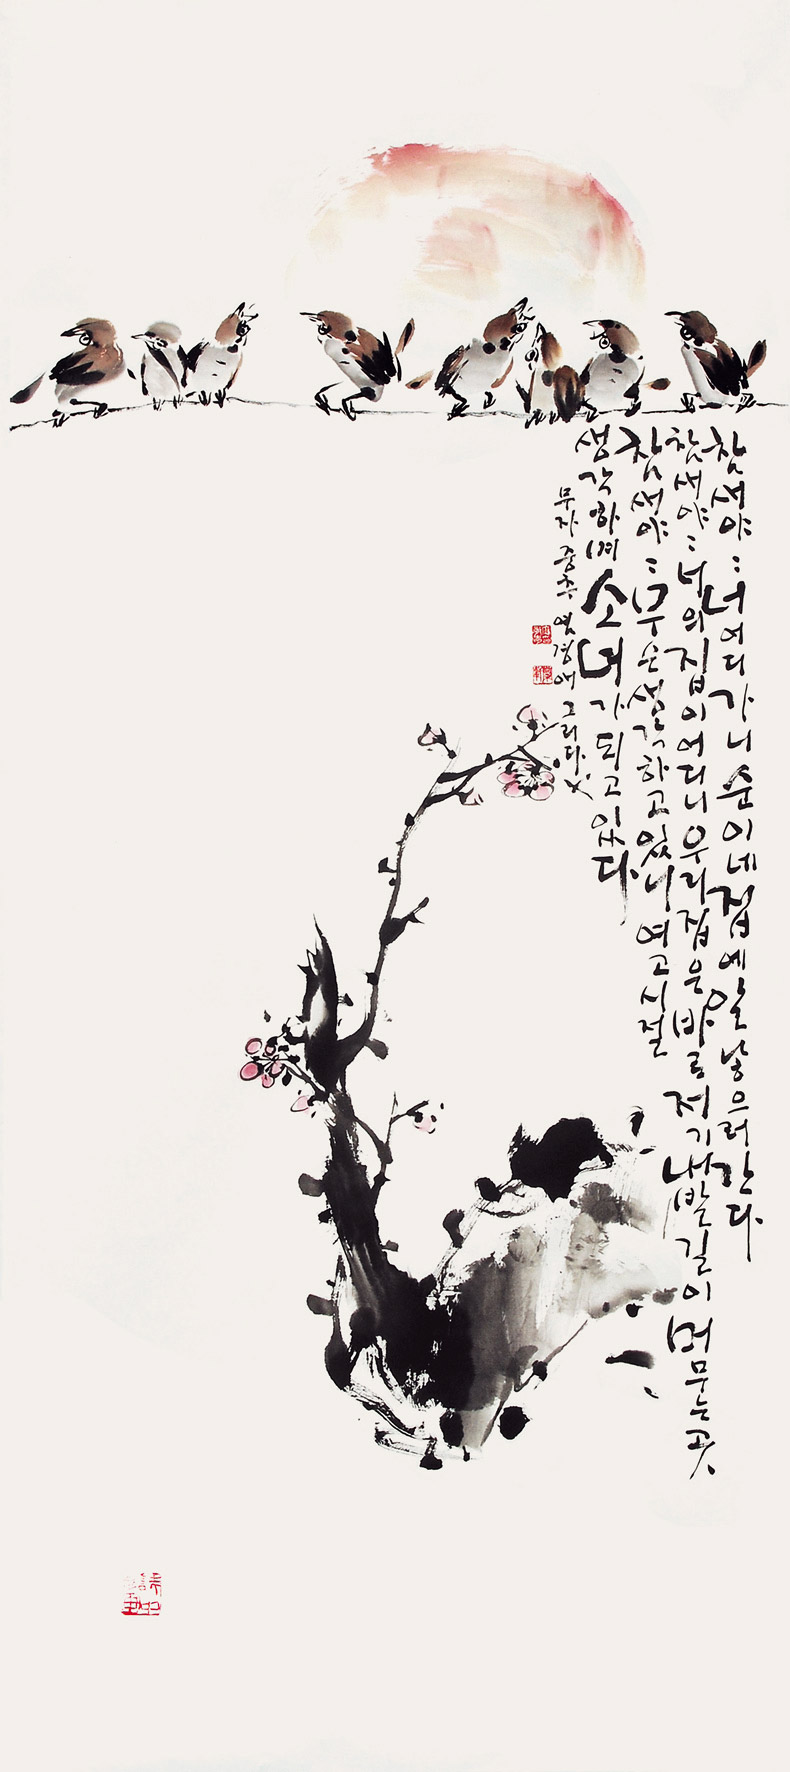 참새야: 너 어디가니 순이네 집에 알 낳으러 간다
참새야: 너의 집이 어디니 우리집은 바로 저기 내 발길이 머무는 곳
참새야: 무슨 생각하고 있니 여고시절
생각하며 소녀가 되고 있다
무자 중추 염경애 그리다